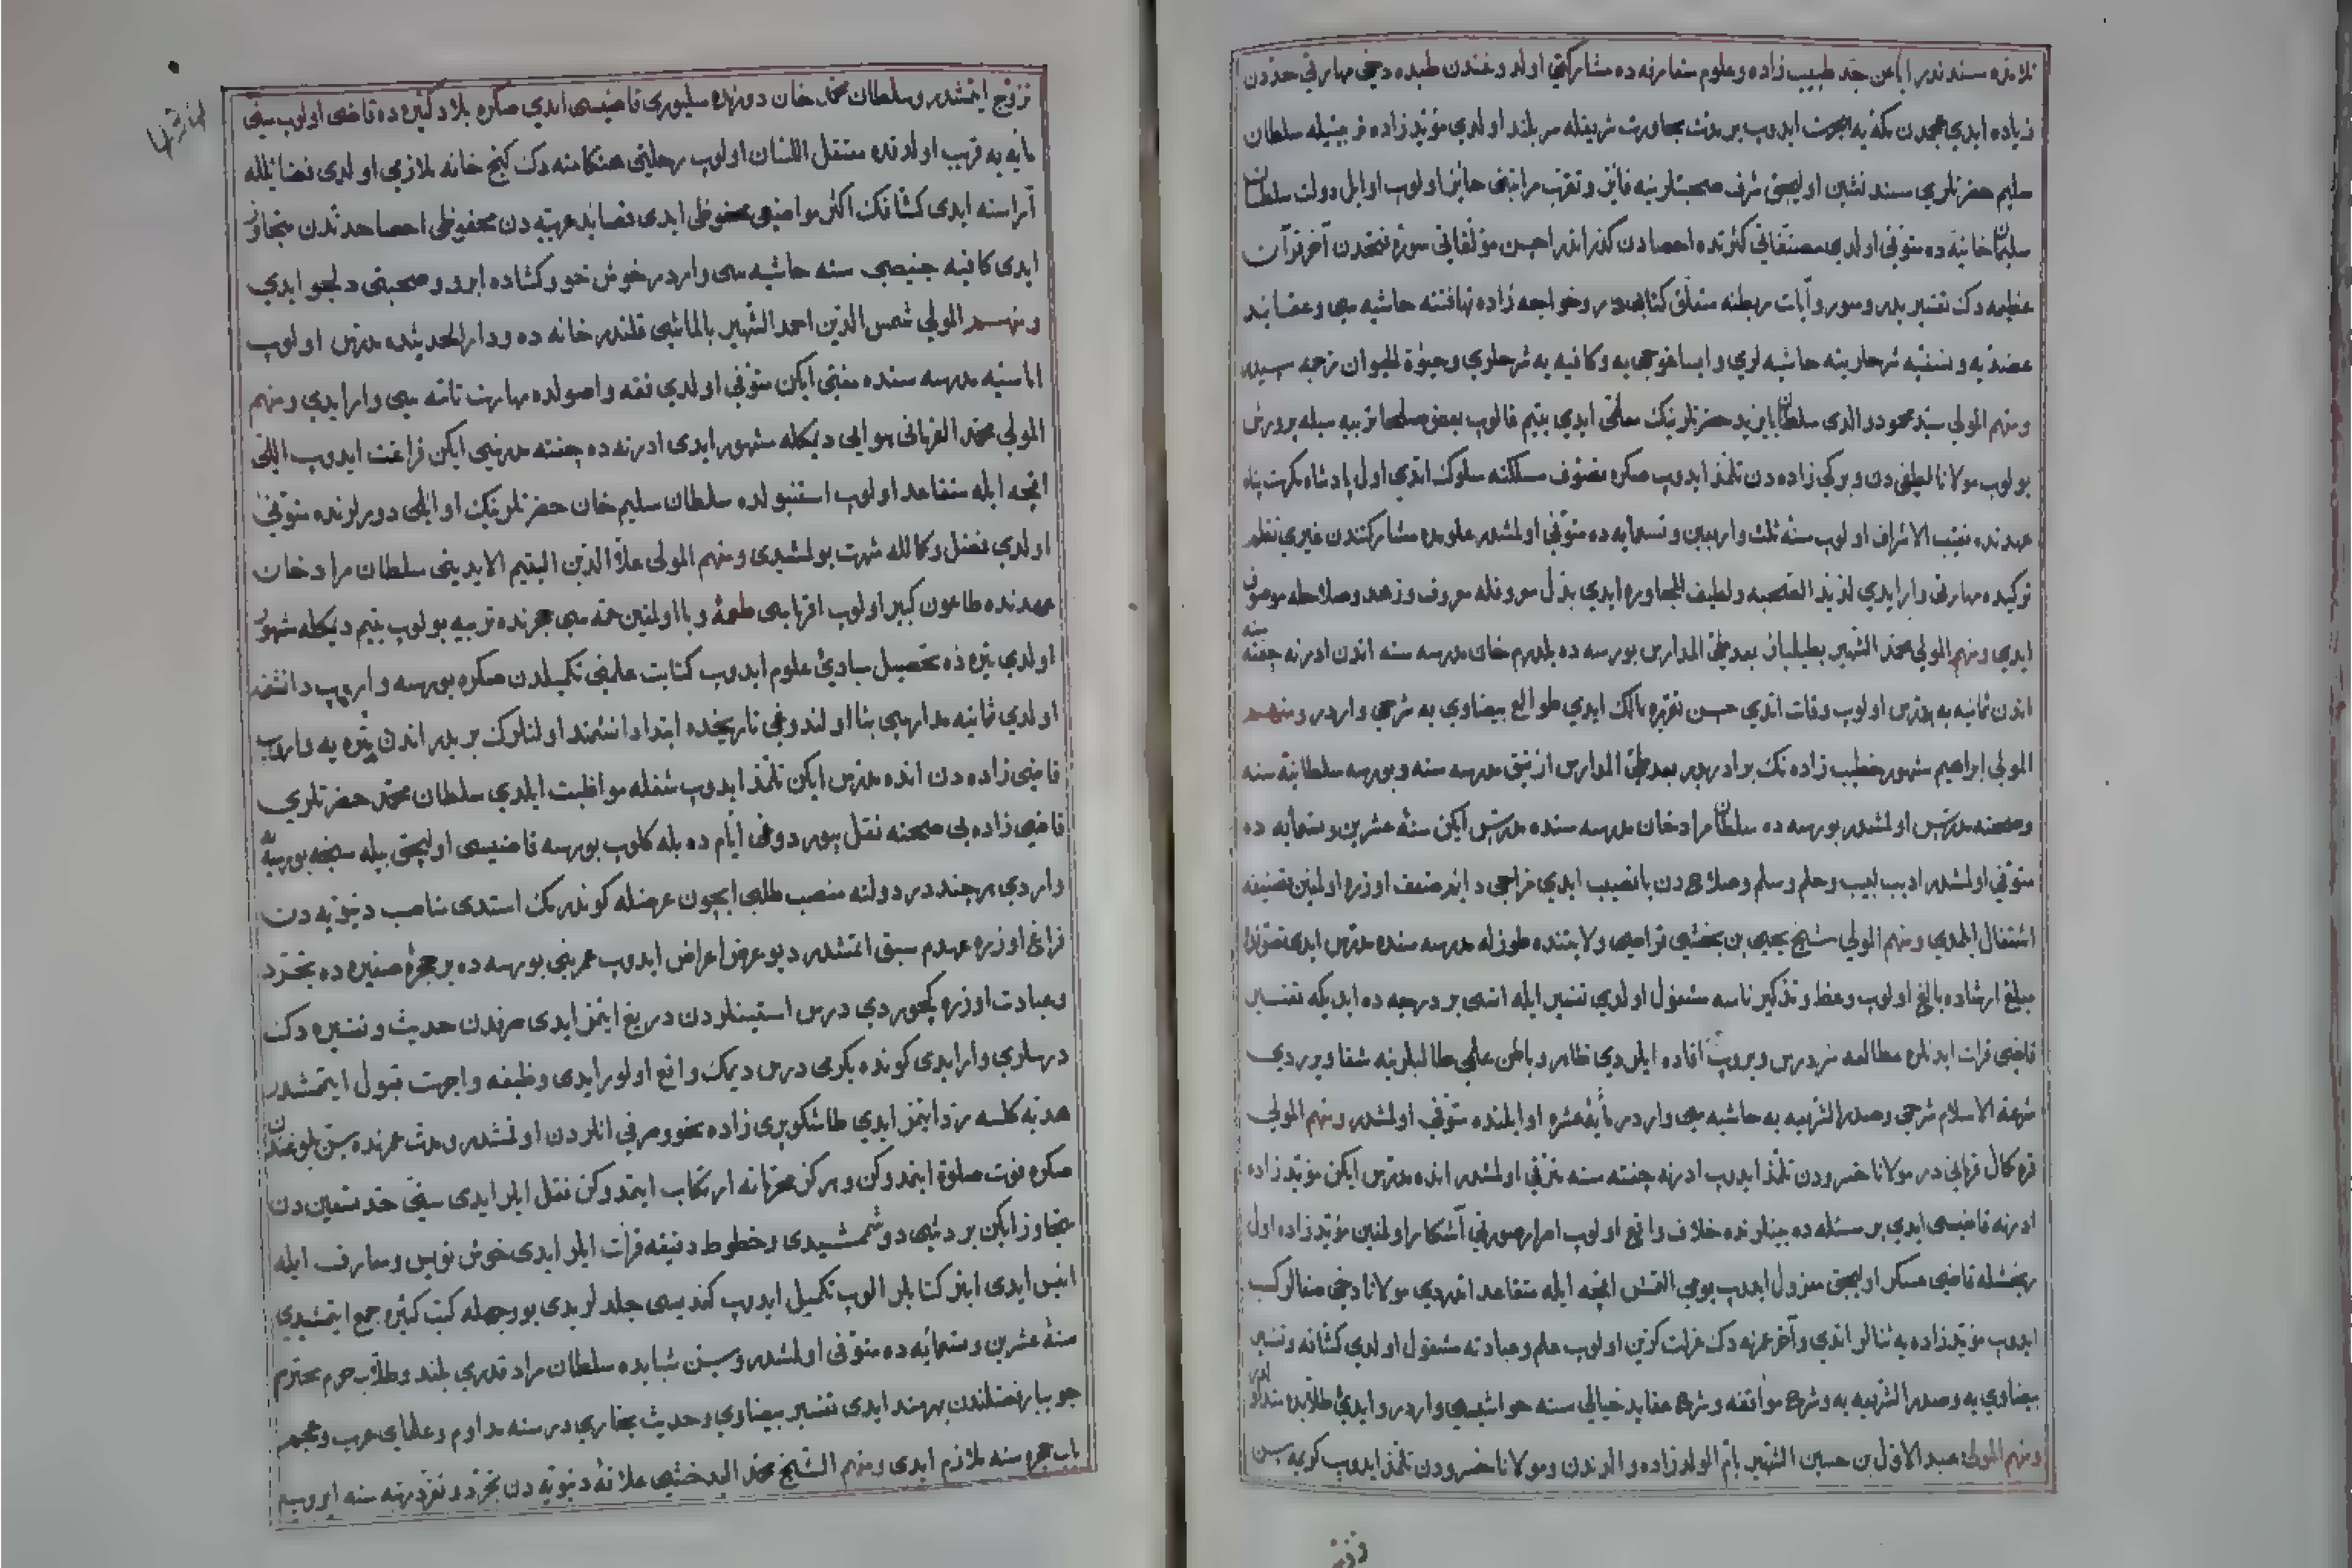 تلامذه سندندر ابا عن جد طبيب زاده وعلوم متعارفه ده مشاركتی اولدوغندن طبده دخی مهارتی حددن
زياده ايدی عجمدن مكه يه هجرت ايدوب بر مدت مجاورت شريفله سربلند اولدی مؤيد زاده تربيتيله سلطان
سليم حضرتلری مسند نشين اوليجق شرف صحبتلرينه فائز وتقرب مراتبنی حائز اولوب اوايل دولت سلطان
سليمان خانيه ده متوفی اولدی مصنفاتی كثرتده احصادن كذراندر احسن مؤلفاتی سوره نحلدن آخر قرآن
عظيمه دك تفسيريدر وسور وآيات ربطنه متعلق كتابيدر وخواجه زاده تهافتنه حاشيه سی وعقايد
عضديه ونسفيه شرحلرينه حاشيه لری وايساغوجی يه وكافيه يه شرحلری وحيوة الحيوان ترجمه سيدر
ومنهم المولی سيد محمود والدی سلطان بايزيد حضرتلرينك معلمی ايدی يتيم قالوب بعض صلحا تربيه سيله پرورش
بولوب مولانا لطفی دن وبركی زاده دن تلمذ ايدوب صكره تصوف مسلكنه سلوك ايتدی اول پادشاه مكرمت پناه
عهدنده نقيب الاشراف اولوب سنه ثلث واربعين وتسعمايه ده متوفی اولمشدر علومده مشاركتندن غيری نظم
توكيده مهارتی وار ايدی لذيذ الصحبه ولطيف المحاوره ايدی بذل معروفله معروف وزهد وصلاحله موصوف
ايدی ومنهم المولی محمد الشهير بطبلباز بعد طی المدارس بورسه ده يلدرم خان مدرسه سنه اندن ادرنه جفته سنه
اندن ثمانيه يه مدرس اولوب وفات ايتدی حسن تقريره مالك ايدی طوالع بيضاوی يه شرحی واردر ومنهم
المولی ابراهيم مشهور خطيب زاده نك برادريدر بعد طی المدارس ازنيق مدرسه سنه وبورسه سلطانيه سنه
وصحنه مدرس اولمشدر بورسه ده سلطان مراد خان مدرسه سنده مدرس ايكن سنه عشرين وتسعمايه ده
متوفی اولمشدر اديب لبيب وحلم وسلم وصلاح دن بانصيب ايدی مزاجی دائم ضعف اوزره اولمغين تصنيفه
اشتغال ايلمدی ومنهم المولی شيخ يحيی بن بخشی قراصی ولايتنده طوزله مدرسه سنده مدرس ايدی تصوفده
مبلغ ارشاده بالغ اولوب وعظ وتذكير ناسه مشغول اولدی تفسير ايله انسی بر درجه ده ايديكه تفسير
قاضی قرات ايدنلره مطالعه سز درس ويروب افاده ايلردی ظاهر وباطن علمی طالبلرينه شفا ويرردی
شرعة الاسلام شرحی وصدر الشريعه يه حاشيه سی واردر مايه عشره اوايلنده متوفی اولمشدر ومنهم المولی
قره كمال قرمانی در مولانا خسرودن تلمذ ايدوب ادرنه جفته سنه مترقی اولمشدر انده مدرس ايكن مؤيد زاده
ادرنه قاضيسی ايدی بر مسئله ده بينلرنده خلاف واقع اولوب اصرار صورتی آشكار اولمغين مؤيد زاده اول
رنجشله قاضی عسكر اوليجق معزول ايدوب يومی التمش اقچه ايله متقاعد ايتدردی مولانا دخی صفالر كسب
ايدوب مؤيد زاده يه ثنالر ايتدی وآخر عمرنه دك عزلت كزين اولوب علم وعبادته مشغول اولدی كشافه وتفسير
بيضاوی يه وصدر الشريعه يه وشرح مواقفه وشرح عقايد خيالی سنه حواشيسی واردر وايدی طلابده متداولدر
ومنهم المولی عبد الاول بن حسين الشهير بام الولد زاده والدندن ومولانا خسرودن تلمذ ايدوب كريمه سن
تزوج ايتمشدر وسلطان محمد خان دورنده سليوری قاضيسی ايدی صكره بلاد كثيره ده قاضی اولوب سنی
مايه يه قريب اولدقده مثقل اللسان اولوب رحلتی هنكامنه دك كنج خانه ملازمی اولدی فضائلله
آراسته ايدی كشافك اكثر مواضعی محفوظی ايدی قصايد عربيه دن محفوظی احصا حدندن متجاوز
ايدی كافيه خبيصی سنه حاشيه سی واردر خوش خو وكشاده ابرو وصحبتی دلجو ايدی
ومنهم المولی شمس الدين احمد الشهير بالماشی قلندر خانه ده ودار الحديثده مدرس اولوب
اماسيه مدرسه سنده مفتی ايكن متوفی اولدی فقه واصولده مهارت تامه سی وار ايدی ومنهم
المولی محمد القرمانی هوايی ديمكله مشهور ايدی ادرنه ده جفته مدرسی ايكن فراغت ايدوب اللی
اقچه ايله متقاعد اولوب استنبولده سلطان سليم خان حضرتلرينك اوائل دورلرنده متوفی
اولدی فضل وكمالله شهرت بولمشيدی ومنهم المولی علاء الدين اليتيم الايدينی سلطان مراد خان
عهدنده طاعون كبير اولوب اقرباسی طعمه وبا اولمغين عمه سی حجرنده تربيه بولوب يتيم ديمكله مشهور
اولدی تيره ده تحصيل مبادئ علوم ايدوب كتابت علمنی تكميلدن صكره بورسه واروب دانشمند
اولدی ثمانيه مدارسی بنا اولندوغی تاريخده ابتدا دانشمند اولنلرك بريدر اندن تيره يه واروب
قاضی زاده دن انده مدرس ايكن تلمذ ايدوب شغله مواظبت ايلدی سلطان محمد حضرتلری
قاضی زاده يی صحنه نقل بيوردوغی ايام ده بله كلوب بورسه قاضيسی اوليجق بيله سنجه بورسيه يه
واردی هر چند در دولته منصب طلبی ايچون عرضله كوندرمك استدی مناصب دنيويه دن
فراغ اوزره عهدم سبق ايتمشدر ديو عرض اعراض ايدوب عمرينی بورسه ده بر حجره صغيره ده تجرد
وعبادت اوزره كچوردی درس استينلردن دريغ ايتمز ايدی صرفدن حديث وتفسيره دك
درسلری وار ايدی كونده يكرمی درس ديمك واقع اولور ايدی وظيفه واجرت قبول ايتمشدر
هديه كلسه رد ايتمز ايدی طاشكوپری زاده نحو وصرفی انلردن اوقمشدر ومدت عمرنده سن بلوغندن
صكره فوت صلوة ايتمدوكن وهركز محرماته ارتكاب ايتمدوكن نقل ايلر ايدی سنی حد تسعين دن
متجاوز ايكن بر دشی دوشمشيدی وخطوط دقيقه قرات ايلر ايدی خوش نويس ومعارف ايله
انيس ايدی ابتر كتابلر الوب تكميل ايدوب كندیسی جلدلر يدی بو وجهله كتب كثيره جمع ايتمشيدی
سنه عشرين وتسعمايه ده متوفی اولمشدر وسن شبابده سلطان مراد قدری بلند وطلاب حرم محترم
جويبار فضلندن بهره مند ايدی تفسير بيضاوی وحديث بخاری درسنه مداوم وعلمای عرب وعجم
باب حجره سنه ملازم ايدی ومنهم الشيخ محمد البدخشی علائق دنيويه دن تجرد وتفرد رتبه سنه ايروب